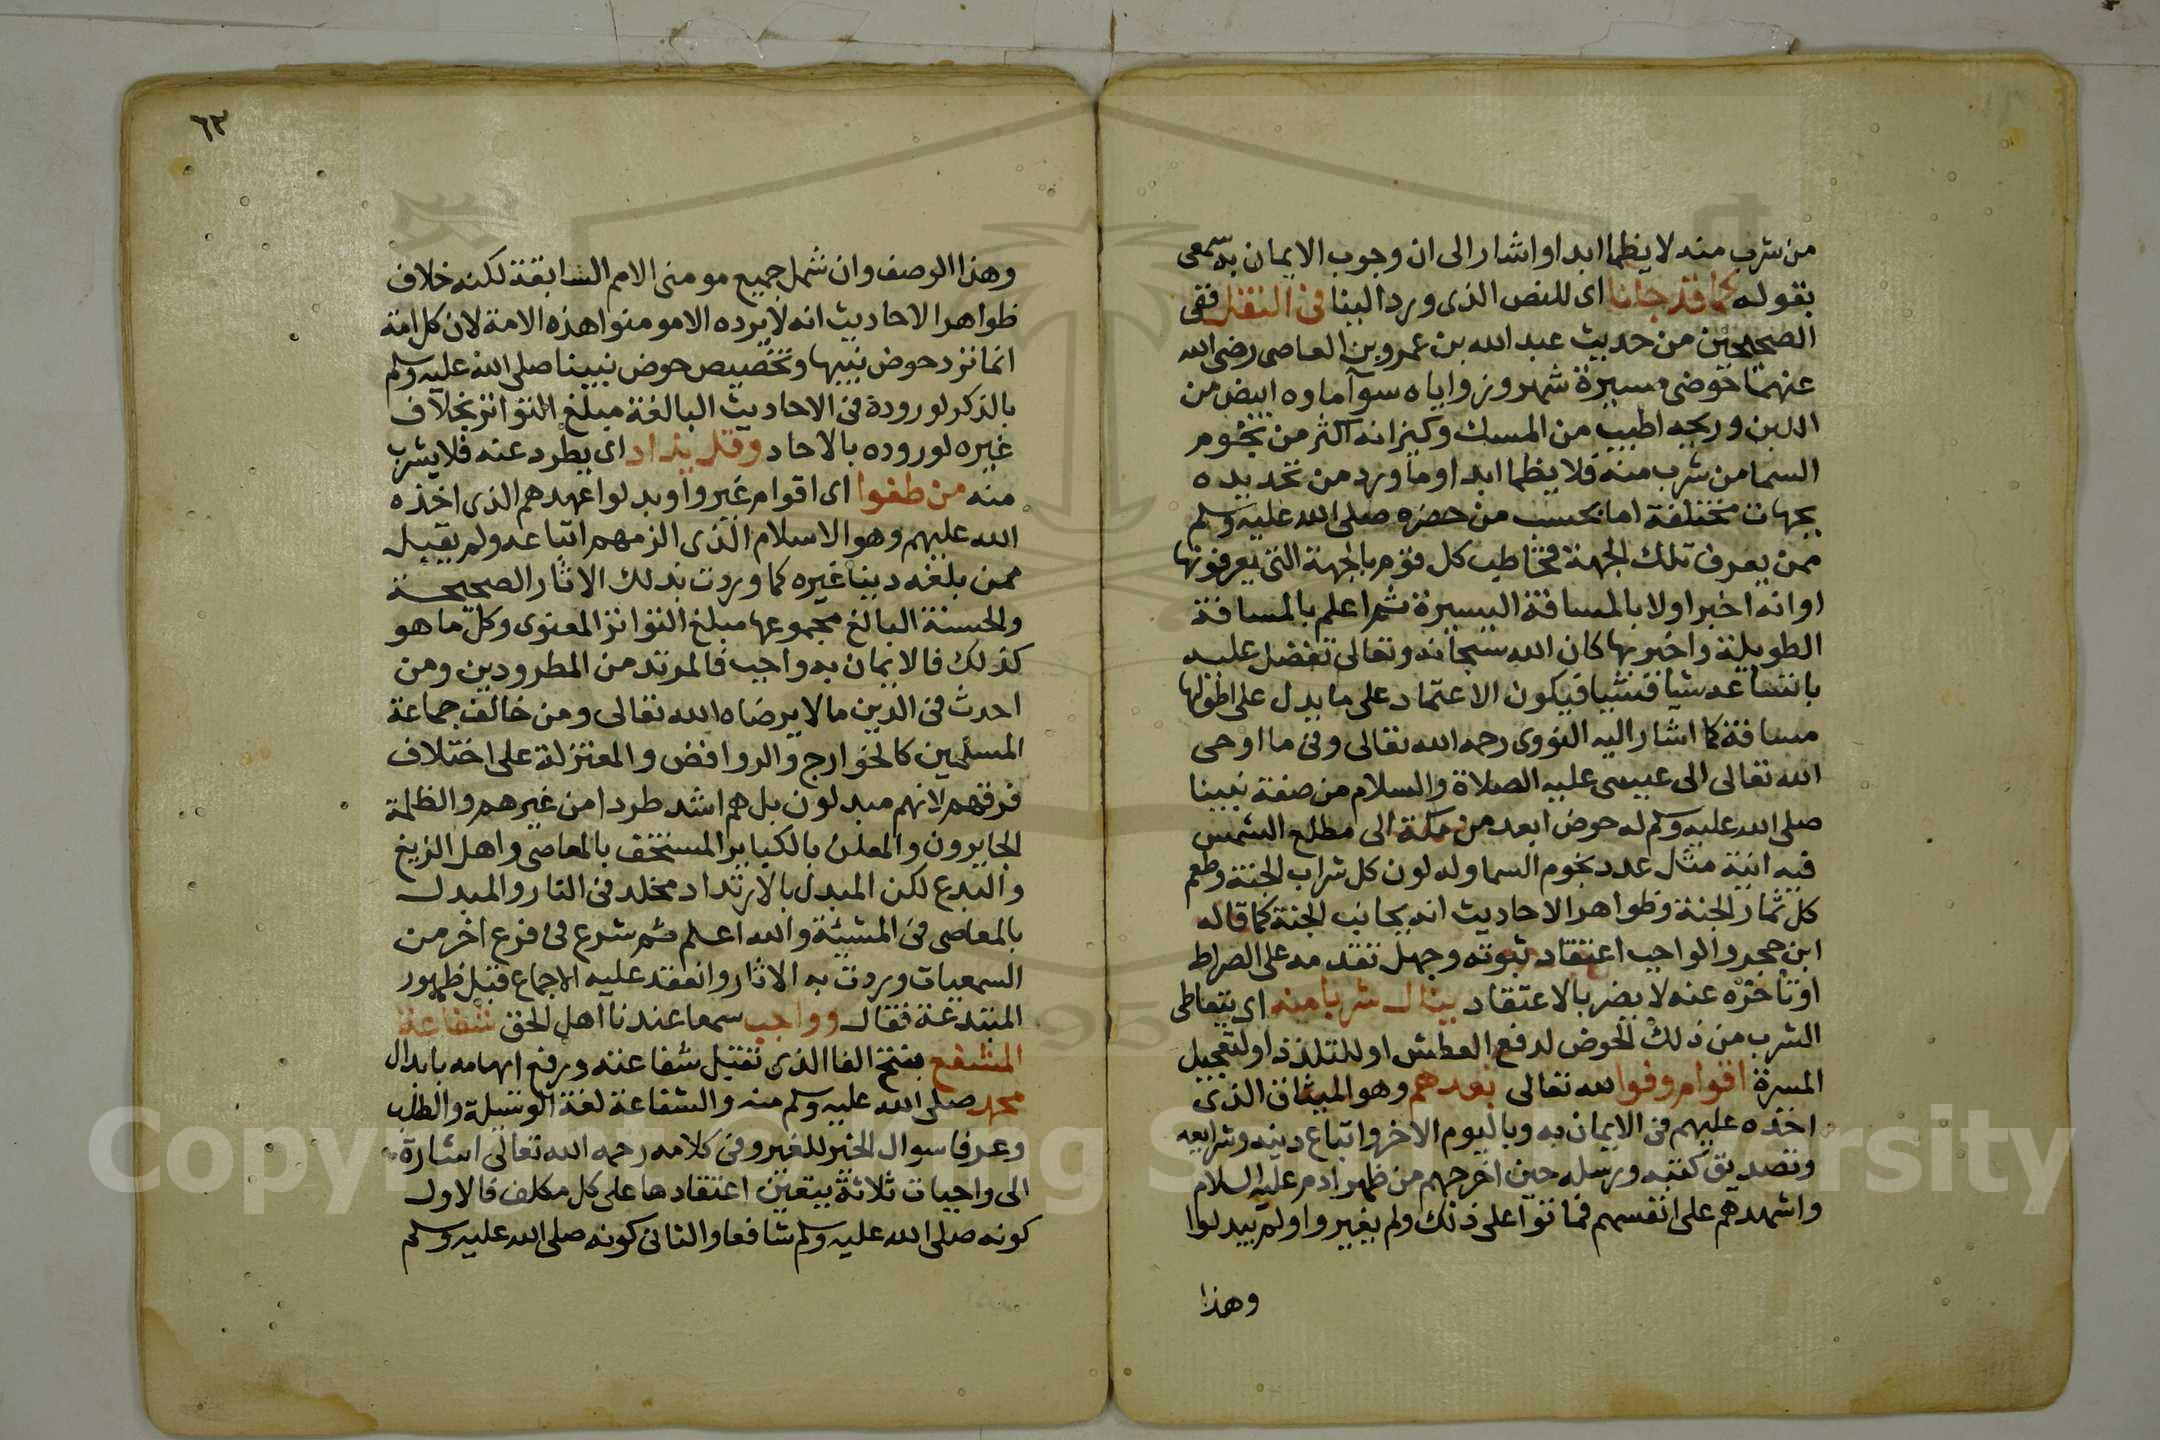 من شرب منه لا يظما ابدا واشار الى ان وجوب الايمان به سمعى
بقوله كما قد جانا اى للنص الذى ورد الينا فى النقل ففى
الصحيحين من حديث عبد الله بن عمرو بن العاصى رضى الله
عنهما حوضى مسيرة شهر وزواياه سوآ ماوه ابيض من
اللبن وريحه اطيب من المسك وكيزانه اكثر من نجوم
السما من شرب منه فلا يظما ابدا وما ورد من تحديده
بجهات مختلفة اما بحسب من حضره صلى الله عليه وسلم
ممن يعرف تلك الجهة فخاطب كل قوم بالجهة التى يعرفونها
او انه اخبر اولا بالمسافة اليسيرة ثم اعلم بالمسافة
الطويلة واخبر بها كان الله سبحانه وتعالى تفضل عليه
باتساعه شيا فشيا فيكون الاعتماد على ما يدل على اطولها
مسافة كما اشار اليه النووى رحمه الله تعالى وفى ما اوحى
الله تعالى الى عيسى عليه الصلاة والسلام من صفة نبينا
صلى الله عليه وسلم له حوض ابعد من مكة الى مطلع الشمس
فيه انية مثل عدد نجوم السما وله لون كل شراب الجنة وطعم
كل ثمار الجنة وظواهر الاحاديث انه بجانب الجنة كما قاله
ابن حجر والواجب اعتقاد ثبوته وجهل تقدمه على الصراط
او تاخره عنه لا يضر بالاعتقاد ينال شربا منه اى يتعاطى
الشرب من ذلك الحوض لدفع العطش او للتلذذ او لتعجيل
المسرة اقوام وفوا لله تعالى بعهدهم وهو الميثاق الذى
اخذه عليهم فى الايمان به وباليوم الاخر واتباع دينه وشرايعه
وتصديق كتبه ورسله حين اخرجهم من ظهر ادم عليه السلام
واشهدهم على انفسهم فماتوا على ذلك ولم يغيروا ولم يبدلوا
وهذا
٦٣
وهذا الوصف وان شمل جميع مومنى الامم السابقة لكنه خلاف
ظواهر الاحاديث انه لا يرده الا مومنوا هذه الامة لان كل امة
انما ترد حوض نبيها وتخصيص حوض نبينا صلى الله عليه وسلم
بالذكر لوروده فى الاحاديث البالغة مبلغ التواتر بخلاف
غيره لوروده بالاحاد وقل يذاد اى يطرد عنه فلا يشرب
منه من طغوا اى اقوام غيروا وبدلوا عهدهم الذى اخذه
الله عليهم وهو الاسلام الذى الزمهم اتباعه ولم يقبل
ممن بلغه دينا غيره كما وردت بذلك الاثار الصحيحة
والحسنة البالغ مجموعها مبلغ التواتر المعنوى وكل ما هو
كذلك فالايمان به واجب فالمرتد من المطرودين ومن
احدث فى الدين ما لا يرضاه الله تعالى ومن خالف جماعة
المسلمين كالخوارج والروافض والمعتزلة على اختلاف
فرقهم لانهم مبدلون بل هم اشد طردا من غيرهم والظلمة
الجايرون والمعلن بالكباير المستخف بالمعاصى واهل الزيغ
والبدع لكن المبدل بالارتداد مخلد فى النار والمبدل
بالمعاصى فى المشيئة والله اعلم ثم شرع فى فرع اخر من
السمعيات وردت به الاثار وانعقد عليه الاجماع قبل ظهور
المبتدعة فقال وواجب سمعا عندنا اهل الحق شفاعة
المشفع بفتح الفا الذى تقبل شفاعته ورفع ابهامه بابدال
محمد صلى الله عليه وسلم منه والشفاعة لغة الوسيلة والطلب
وعرفا سوال الخير للغير وفى كلامه رحمه الله تعالى اشارة
الى واجبات ثلاثة يتعين اعتقادها على كل مكلف فالاول
كونه صلى الله عليه وسلم شافعا والثانى كونه صلى الله عليه وسلم